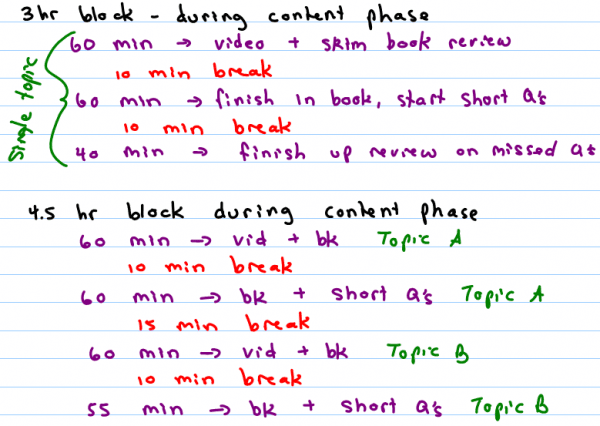 3hr block - during content phase
Single topic
60 min → video + skim book review
10 min break
60 min → finish in book, start short Q's
10 min break
40 min → finish up review on missed Qs
4.5 hr block during content phase
60 min → vid + bk Topic A
10 min break
60 min → bk + short Q's Topic A
15 min break
60 min → vid + bk Topic B
10 min break
55 min → bk + short Q's Topic B